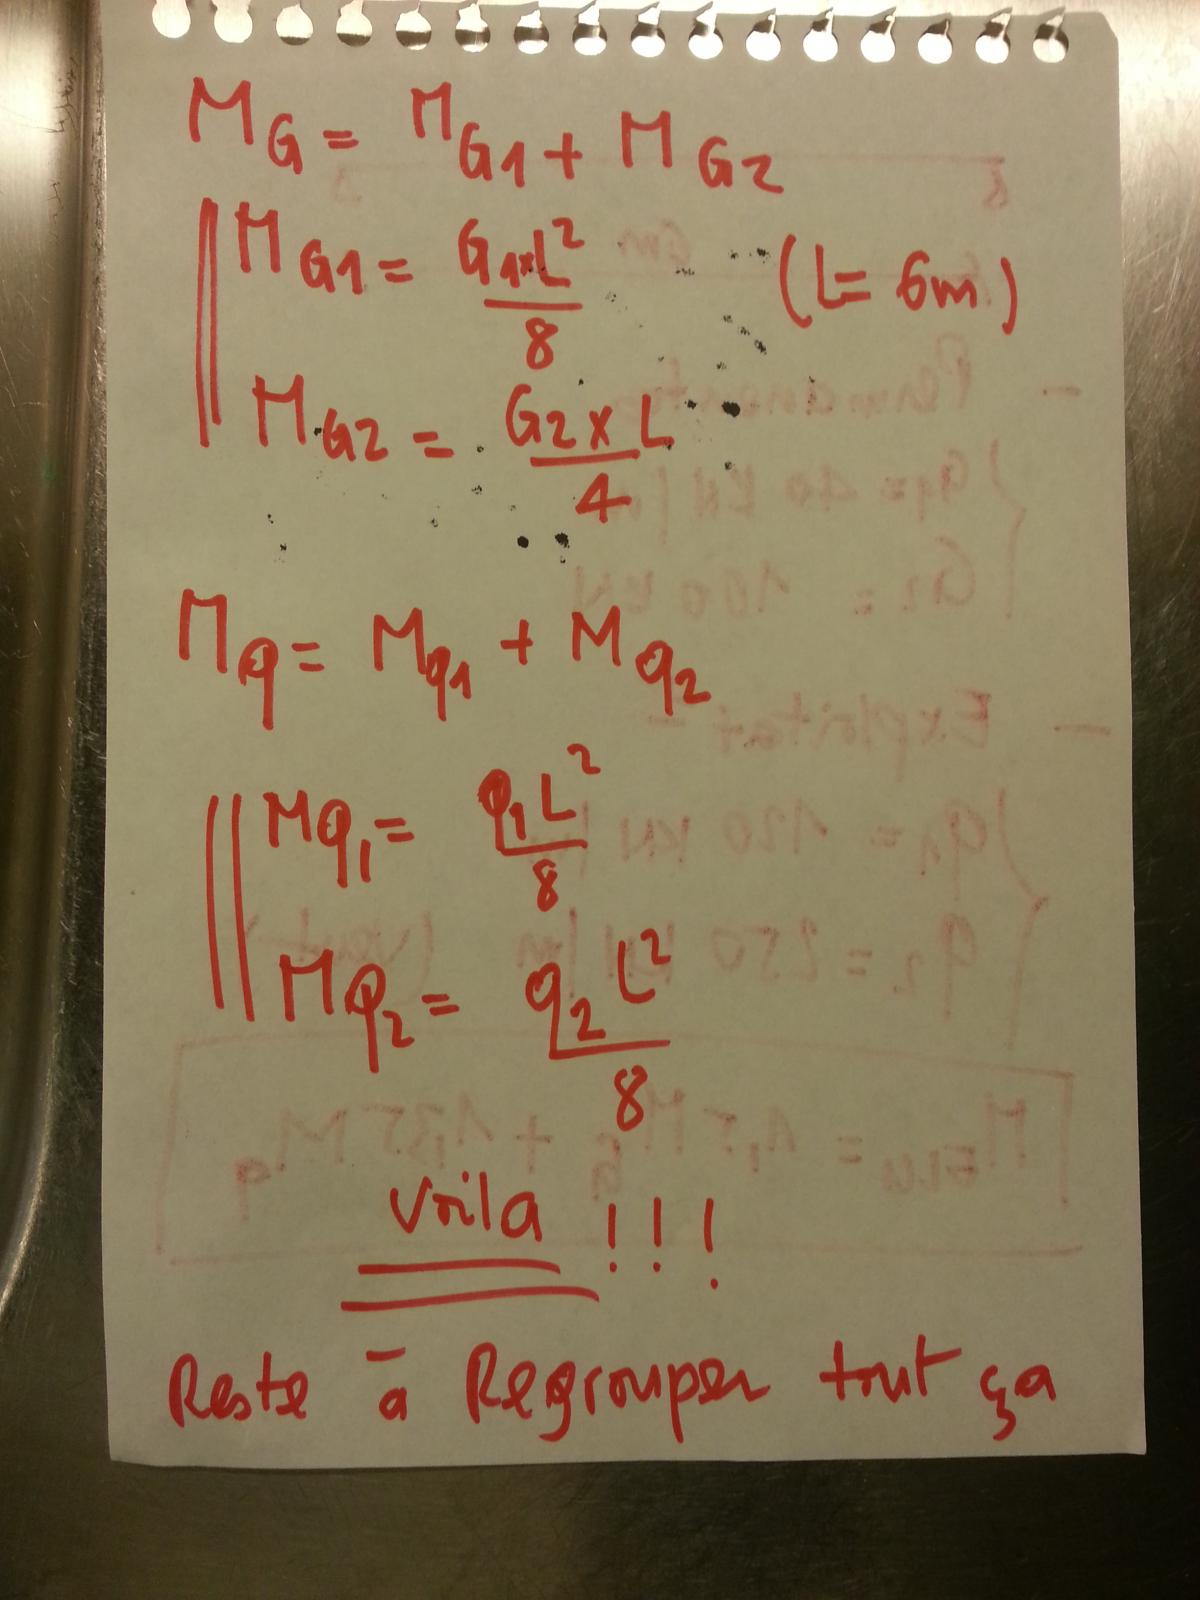 M_G = M_G1 + M_G2
M_G1 = G1×L² / 8 (L = 6m)
M_G2 = G2 × L / 4
M_q = M_q1 + M_q2
M_q1 = q1 L² / 8
M_q2 = q2 L² / 8
Voila !!!
Reste à Regrouper tout ça